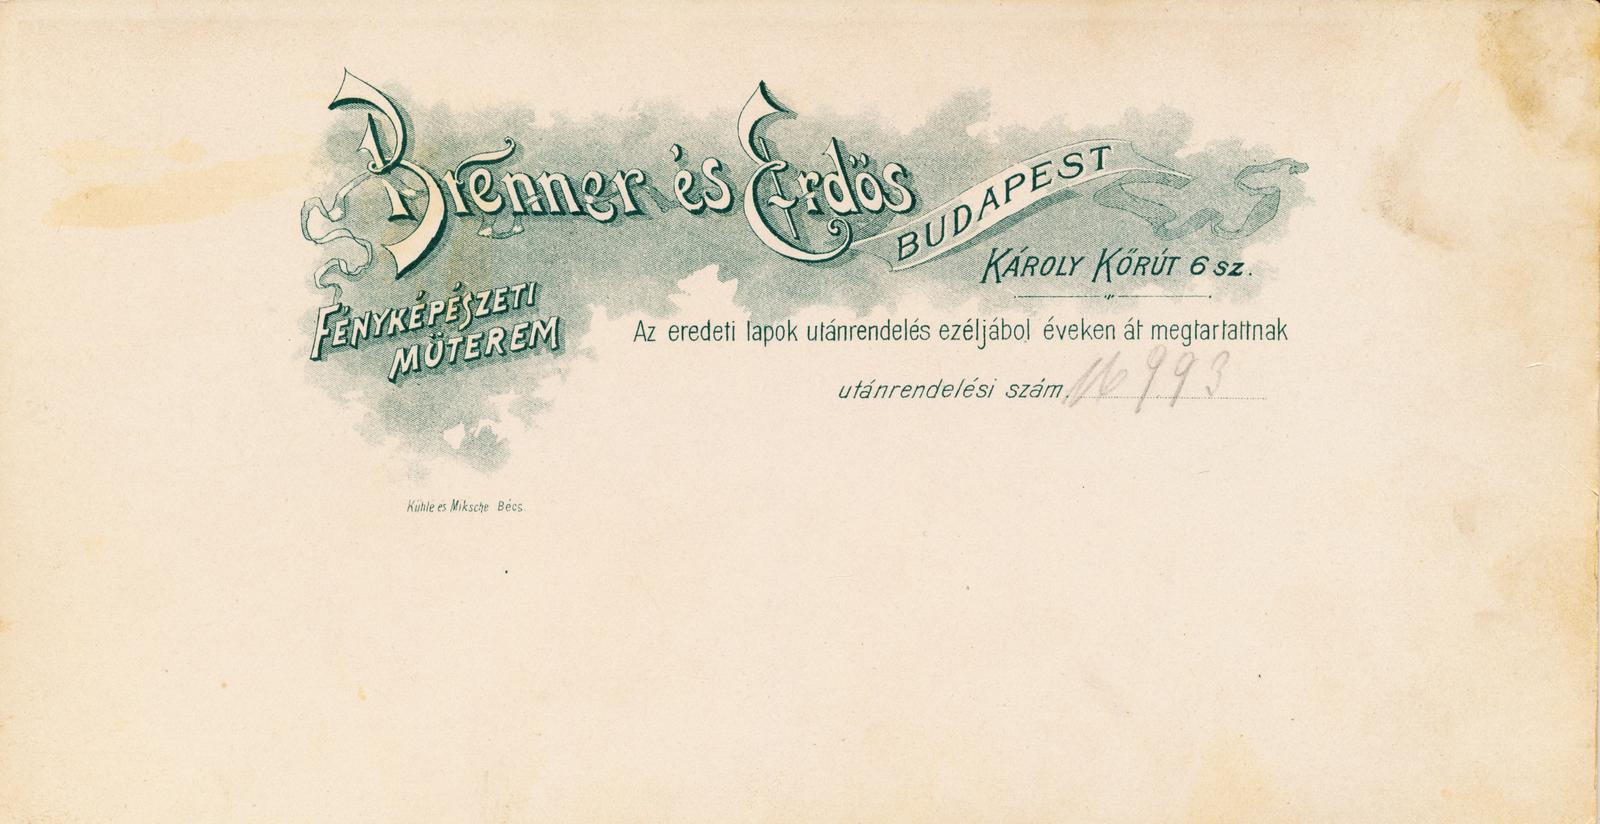 Brenner és Erdös
BUDAPEST
KÁROLY KŐRÚT 6 SZ.
FÉNYKÉPÉSZETI
MÜTEREM
Az eredeti lapok utánrendelés ezéljábol éveken át megtartattnak
utánrendelési szám. 16993
Kühle és Miksche Bécs.